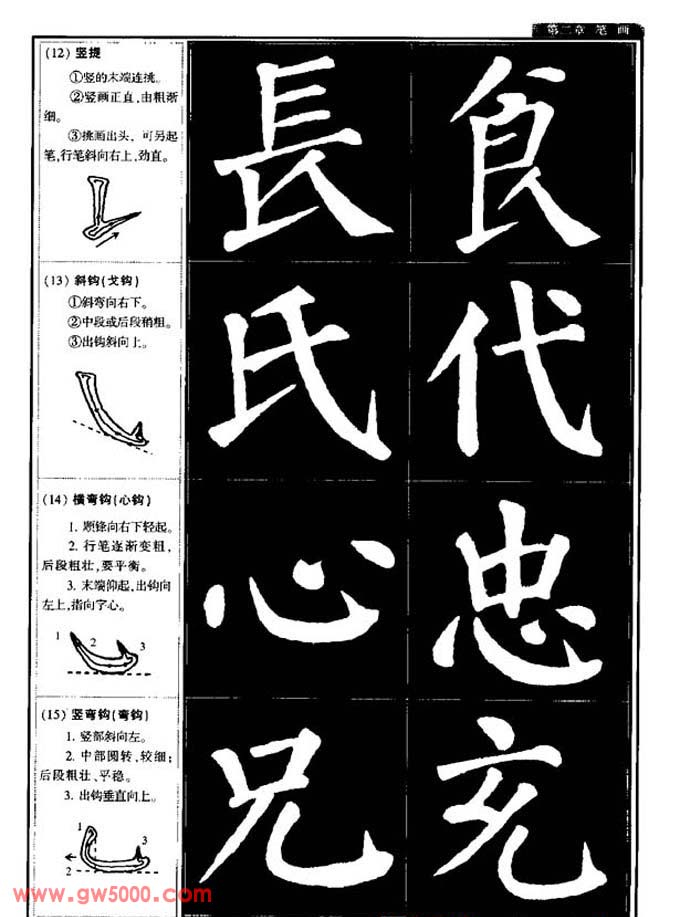 第二章 笔 画
(12) 竖提
①竖的末端连挑。
②竖画正直,由粗渐
细。
③挑画出头，可另起
笔,行笔斜向右上,劲直。
長 食
(13) 斜钩(戈钩)
①斜弯向右下。
②中段或后段稍粗。
③出钩斜向上。
氏 代
(14) 横弯钩(心钩)
1. 顺锋向右下轻起。
2. 行笔逐渐变粗,
后段粗壮,要平衡。
3. 末端仰起,出钩向
左上,指向字心。
1 2 3
心 忠
(15) 竖弯钩(弯钩)
1. 竖部斜向左。
2. 中部圆转,较细;
后段粗壮、平稳。
3. 出钩垂直向上。
1 3
2
兄 充
www.gw5000.com